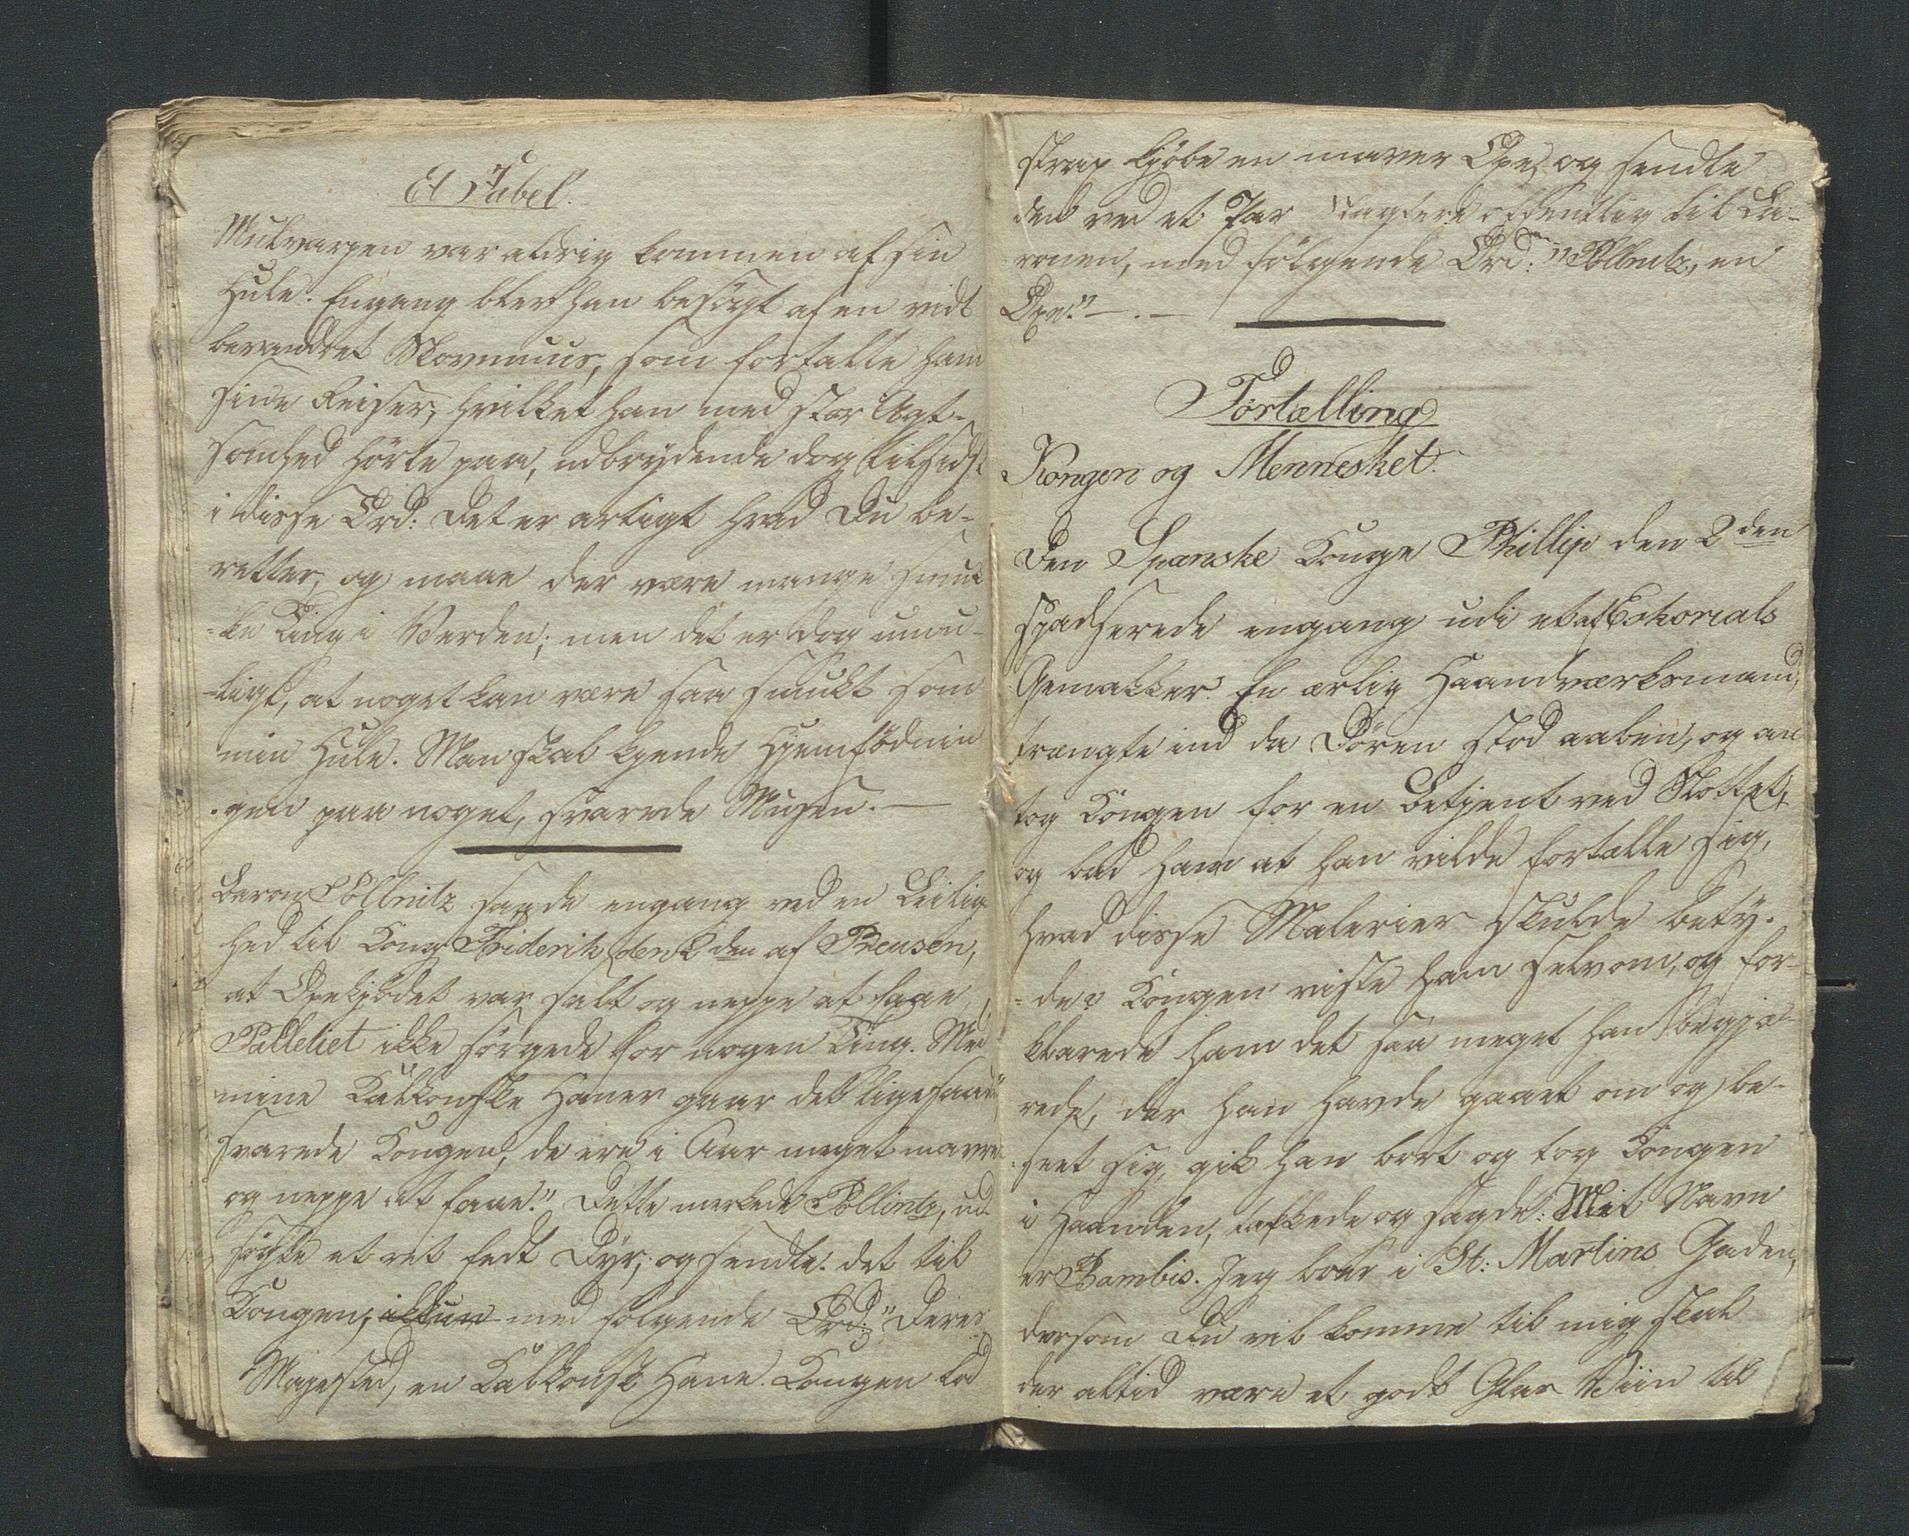 Et Fabel.
Mulvarpen var aldrig kommen af sin
Hule. Engang blev han besøgt af en vidt
bevandret Skovmuus, som fortalte ham
sine Reiser, hvilket han med stor Agt-
somhed hørte paa, udbrydende dog tilsidst
i disse Ord: Det er artigt hvad Du be-
retter, og maae der være mange smuk
-ke Ting i Verden; men det er dog umu-
-ligt, at noget kan være saa smukt som
min Hule. Man skal kjende Hjemfødnin
-gen paa noget, svarede Musen. —
Baron Pöllnitz sagde engang ved en Leilig
hed til Kong Friderik den 2den af Preusen,
at Oxekjødet var salt og neppe at faae,
Palletiet ikke sørgede for nogen Ting. Med
mine Kalkonske Haner gaar det ligesaa"
svarede Kongen, de ere i Aar meget mavre
og neppe at faae." Dette merkede Pöllintz, ud
søgte et ret fedt Dyr, og sendte det til
Kongen, ikkun med følgende Ord: "Deres
Majested, en Kalkonsk Hane. Kongen lod
strax kjøbe en maver Oxe, og sendte
den ved et Par Slagtere offentlig til Ba-
ronen, med følgende Ord: "Pöllnitz, en
Oxe." — . —
Fortælling
Kongen og Mennesket.
Den Spanske Konge Phillip den 2den
spadserede engang udi et af Eskorials
Gemakker. En ærlig Haandværksmand,
trængte ind da Døren stod aaben, og an
tog Kongen for en Betjent ved Slottet,
og bad ham at han vilde fortælle sig,
hvad disse Malerier skulde bety-
-de? Kongen viste ham selv om, og for-
klarede ham det saa meget han begjæ-
rede, der han havde gaaet om og be-
seet sig, gik han bort og tog Kongen
i Haanden, takkede og sagde: Mit Navn
er Bambis. Jeg boer i St: Martins Gaden,
dersom Du vil komme til mig skal
der altid være et godt Glas Viin til